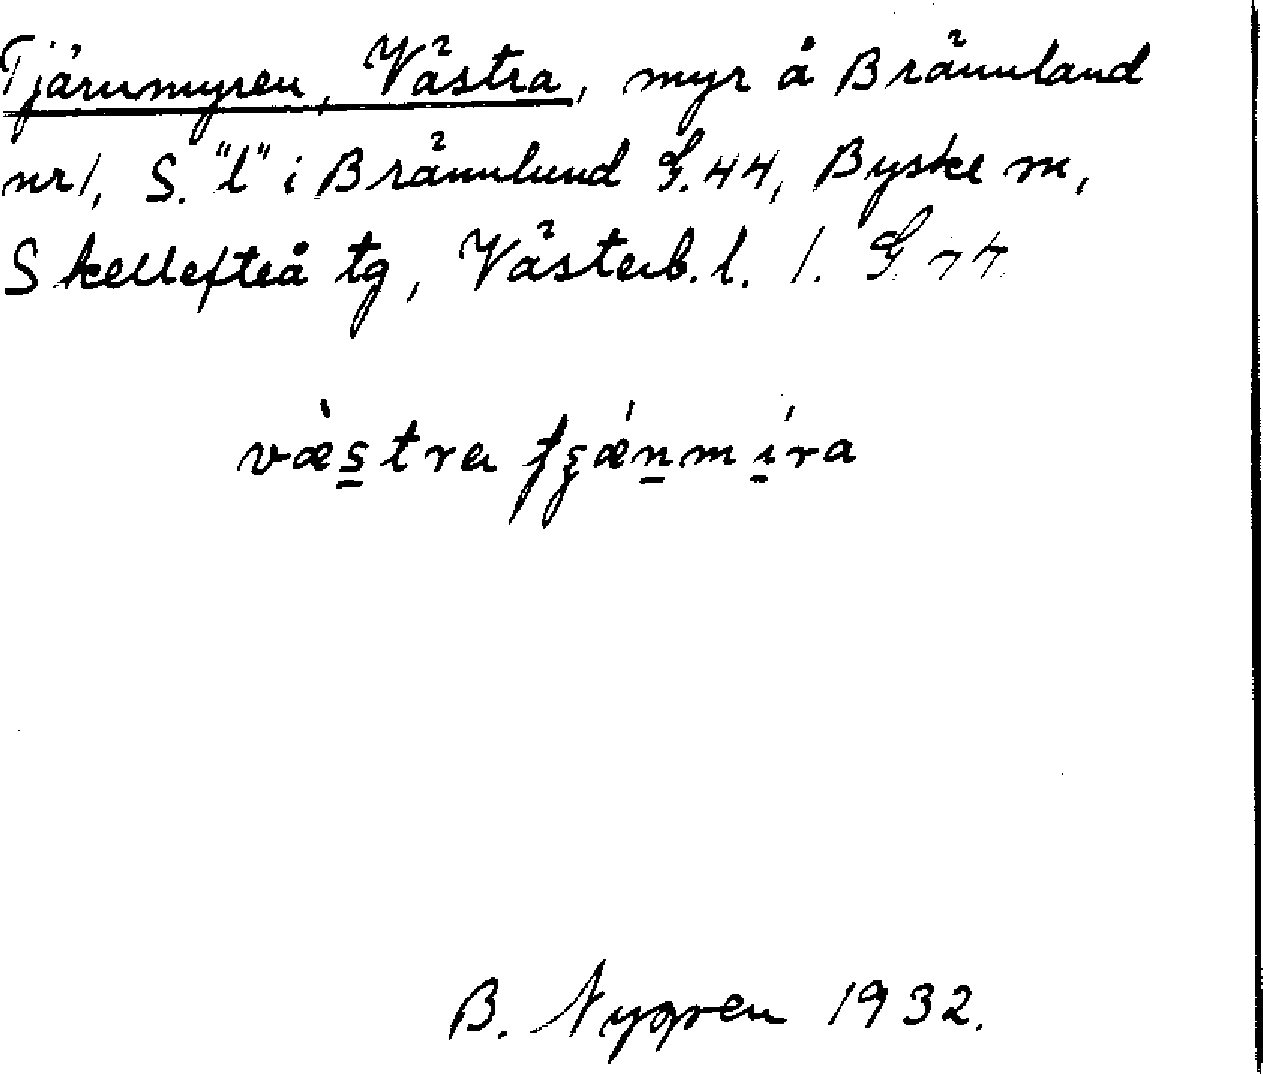 Tjärnmyren, Västra, myr å Brännland
nr 1, S. "l" i Brännlund G. 44, Byske m,
Skellefteå tg, Västerb. l. 1. G 44
væstra
B. Nygren 1932.